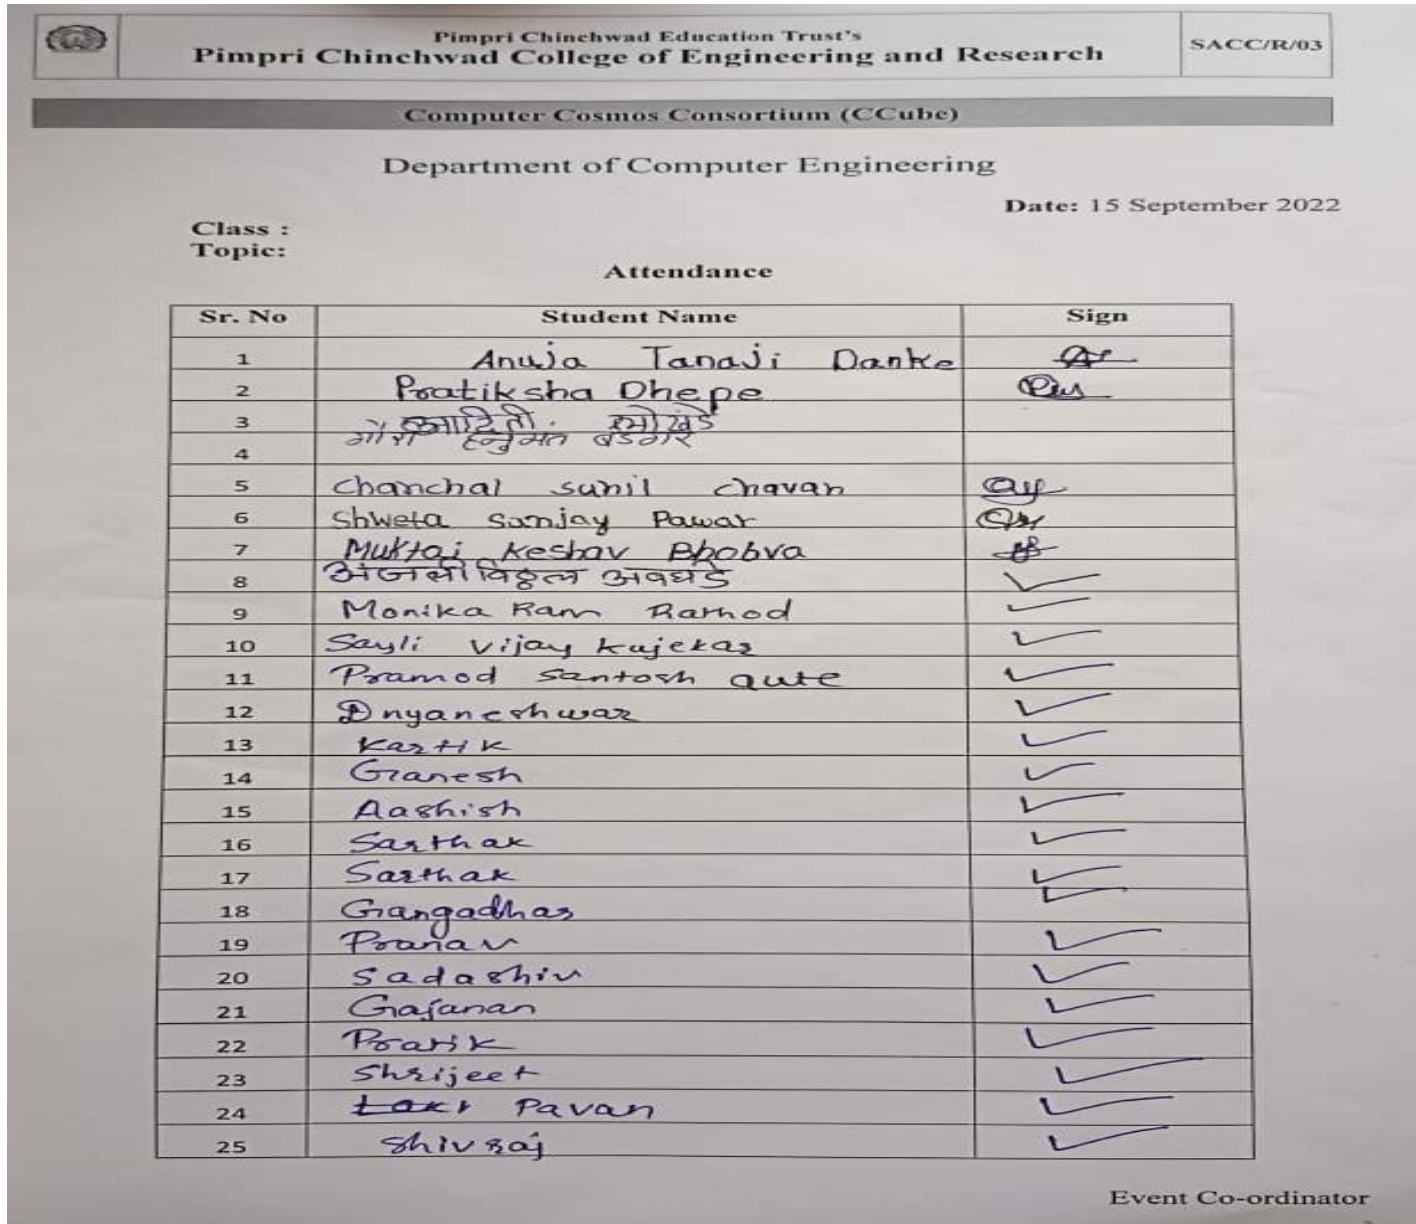 Pimpri Chinchwad Education Trust's
Pimpri Chinchwad College of Engineering and Research
SACC/R/03
Computer Cosmos Consortium (CCube)
Department of Computer Engineering
Date: 15 September 2022
Class :
Topic:
Attendance
Sr. No Student Name Sign
1 Anuja Tanaji Danke
2 Pratiksha Dhepe
3 आदिती. लोखंडे
4 गौरी हनुमंत बडगरे
5 Chanchal sunil chavan
6 Shweta Sanjay Pawar
7 Muktai Keshav Bhobva
8 अंजली विठ्ठल अवघडे
9 Monika Ram Rathod
10 Sayli Vijay Kujekar
11 Pramod Santosh Gute
12 Dnyaneshwar
13 Kartik
14 Ganesh
15 Aashish
16 Sarthak
17 Sarthak
18 Gangadhar
19 Pranav
20 Sadashiv
21 Gajanan
22 Pratik
23 Shrijeet
24 Pavan
25 Shivraj
Event Co-ordinator